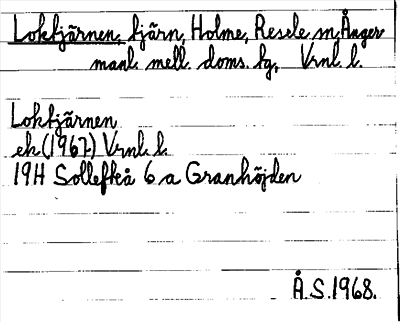 Loktjärnen, tjärn, Holme, Resele sn, Ånger
manl. mell. doms. tg, Vrnl. l.
Loktjärnen
ek (1967) Vrnl. l.
19H Sollefteå 6 a Granhöjden
Å.S. 1968.